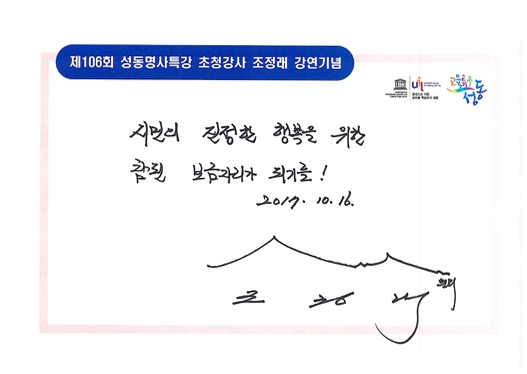 제106회 성동명사특강 초청강사 조정래 강연기념
교육특구
성동
시민의 진정한 행복을 위한
참된 보금자리가 되기를!
2017. 10. 16.
조 정 래